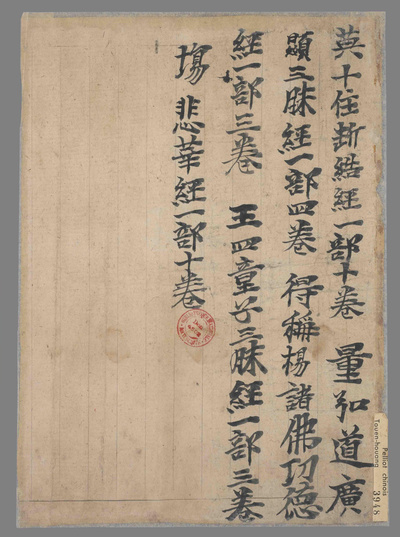 英十住断結經一部十卷 量弘道廣
顯三昧經一部四卷 得稱揚諸佛功德
經一部三卷 王四童子三昧經一部三卷
場 悲華經一部十卷
Pelliot chinois
Touen-houang
3948